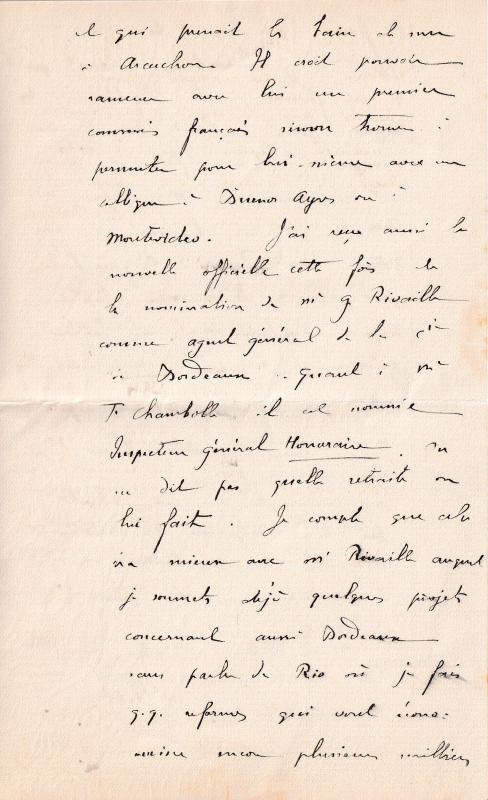 et qui prenait les bains de mer
à Arcachon. Il croit pouvoir
ramener avec lui un premier
commis français sinon trouver à
permuter pour lui-même avec un
collègue à Buenos Ayres ou à
Montevideo. J'ai reçu aussi la
nouvelle officielle cette fois de
la nomination de Mr G Rivaille
comme agent général de la Cie
à Bordeaux. Quant à Mr
T. Chambolle il est nommé
Inspecteur général Honoraire, on
ne dit pas quelle retraite on
lui fait. Je compte que cela
ira mieux avec Mr Rivaille auquel
je soumets déjà quelques projets
concernant aussi Bordeaux
sans parler de Rio où je fais
q.q. reformes qui vont écono-
miser encore plusieurs milliers